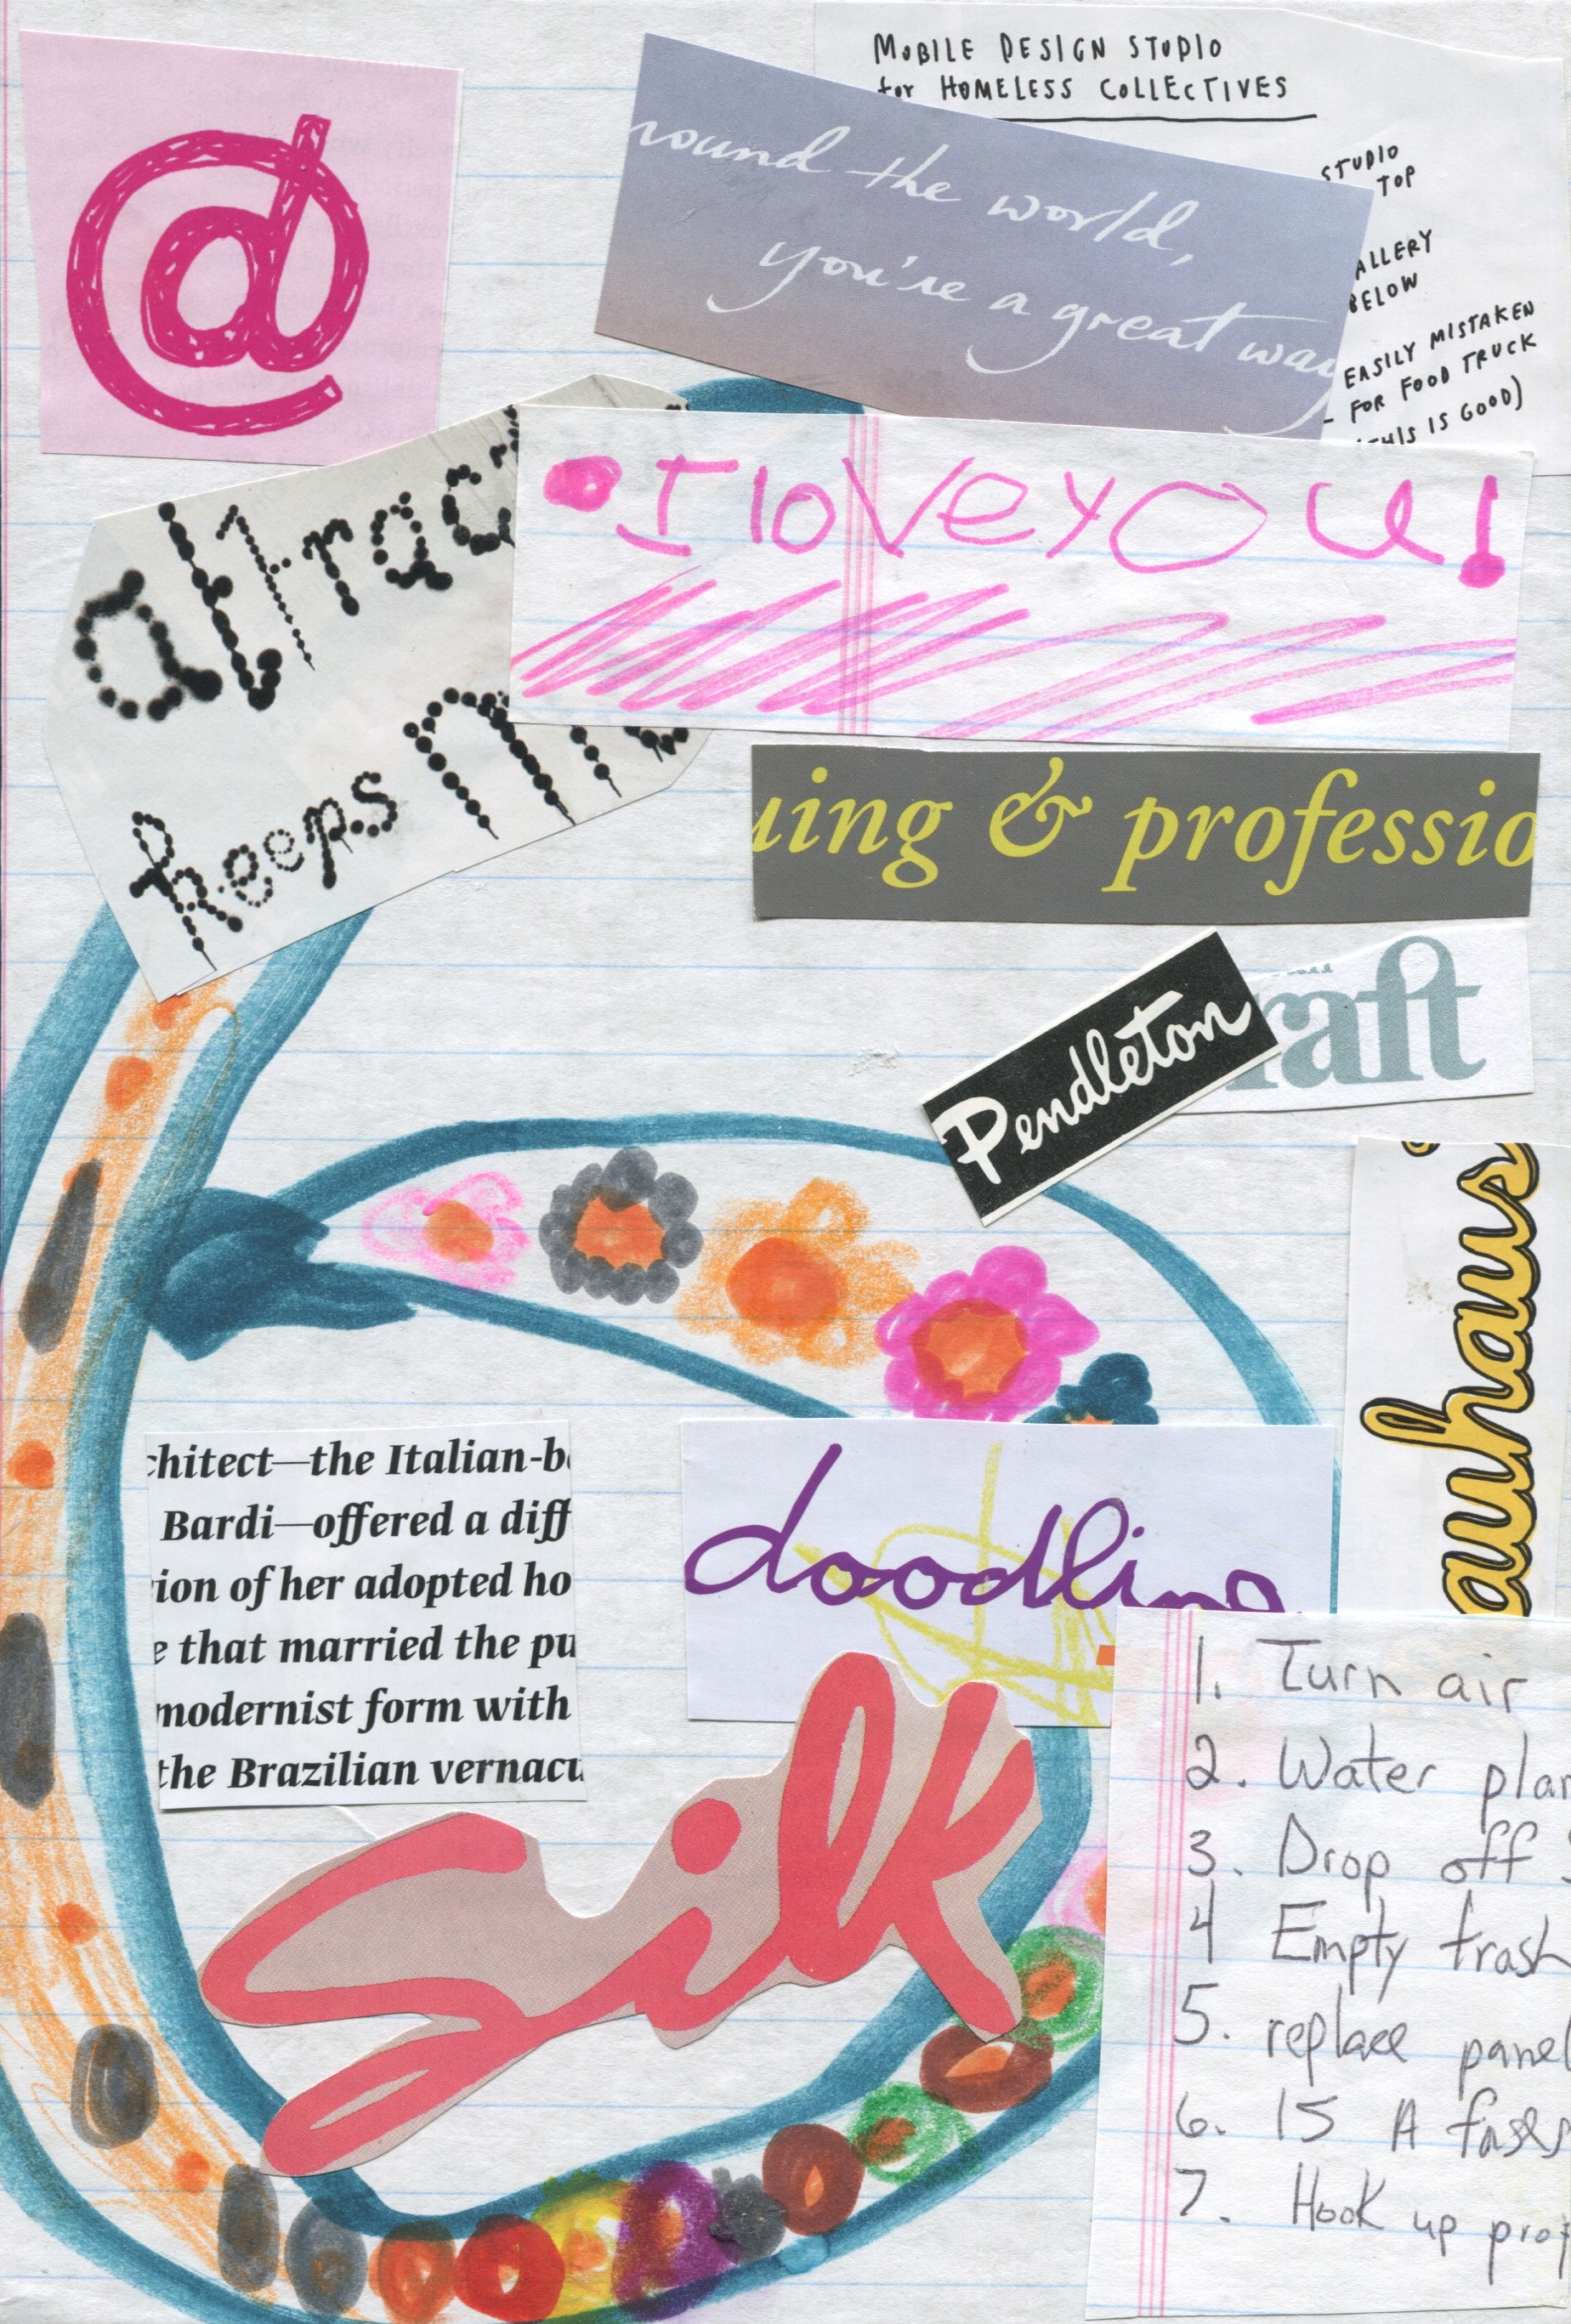 @
MOBILE DESIGN STUDIO
for HOMELESS COLLECTIVES
round the world,
you're a great way
STUDIO
TOP
ALLERY
BELOW
EASILY MISTAKEN
- FOR FOOD TRUCK
(THIS IS GOOD)
attrac
keeps
I love you!
uing & professio
Pendleton
raft
auhaus
chitect—the Italian-b
Bardi—offered a diff
ion of her adopted ho
e that married the pu
modernist form with
the Brazilian vernacu
doodling
Silk
1. Turn air
2. Water plan
3. Drop off
4 Empty trash
5. replace panel
6. 15 A fuses
7. Hook up pro